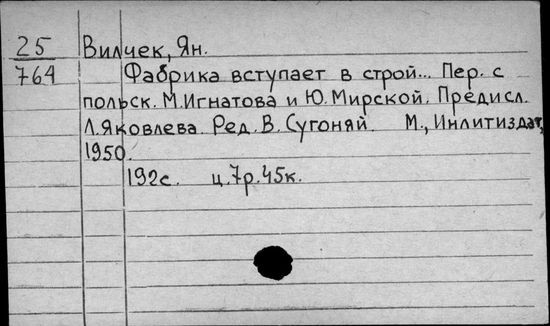 25 Вилчек, Ян.
764 Фабрика вступает в строй... Пер. с
польск. М.Игнатова и Ю.Мирской. Предисл.
Л.Яковлева. Ред. В. Сугоняй. М., Инлитиздат,
1950.
192с. ц.7р.45к.